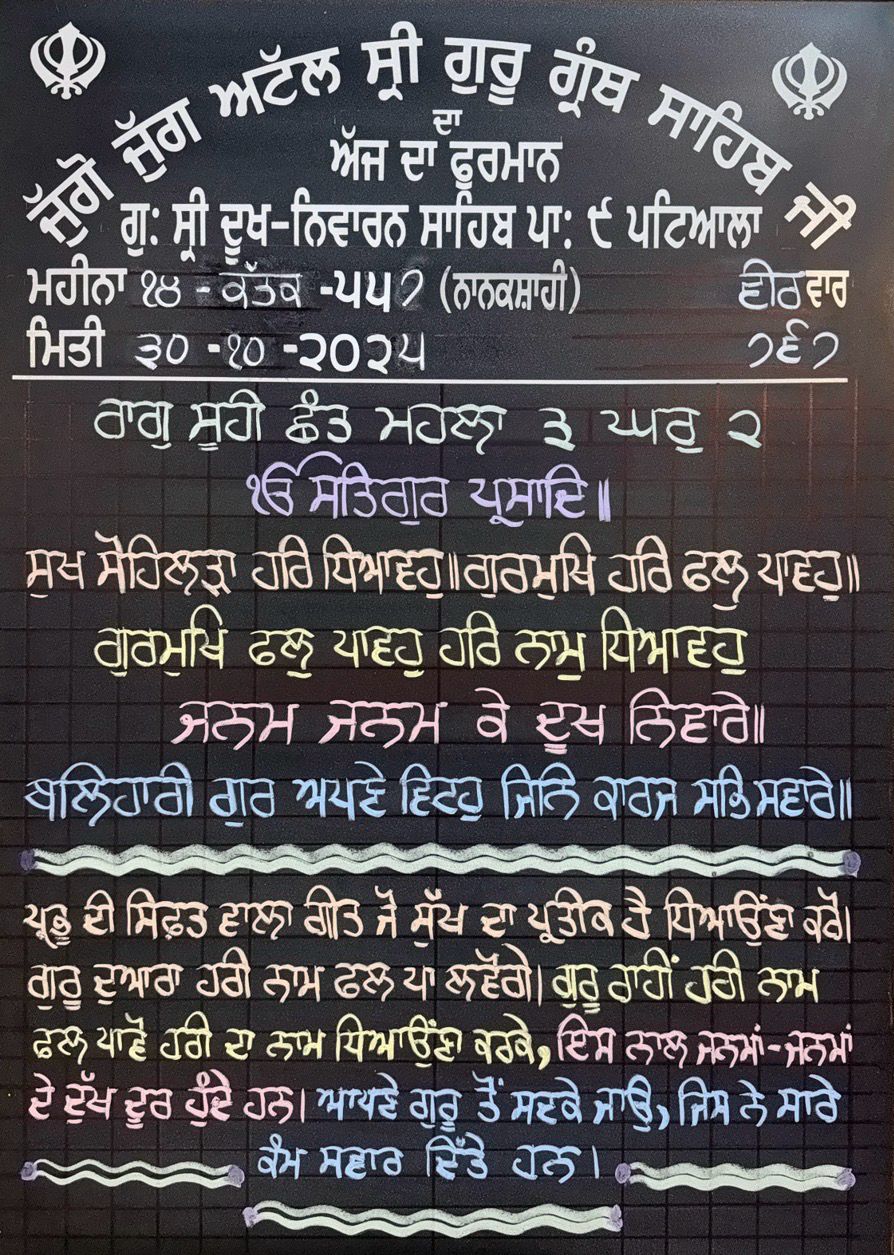 ਜੁੱਗੋ ਜੁੱਗ ਅਟੱਲ ਸ੍ਰੀ ਗੁਰੂ ਗ੍ਰੰਥ ਸਾਹਿਬ ਜੀ
ਦਾ
ਅੱਜ ਦਾ ਫੂਰਮਾਨ
ਗੁ: ਸ੍ਰੀ ਦੂਖ-ਨਿਵਾਰਨ ਸਾਹਿਬ ਪਾ: ੯ ਪਟਿਆਲਾ
ਮਹੀਨਾ ੧੪ - ਕੱਤਕ -੫੫੭ (ਨਾਨਕਸ਼ਾਹੀ) ਵੀਰਵਾਰ
ਮਿਤੀ ੩੦ -੧੦ -੨੦੨੫ ੭੬੭
ਰਾਗੁ ਸੂਹੀ ਛੰਤ ਮਹਲਾ ੩ ਘਰੁ ੨
ੴ ਸਤਿਗੁਰ ਪ੍ਰਸਾਦਿ॥
ਸੁਖ ਸੋਹਿਲੜਾ ਹਰਿ ਧਿਆਵਹੁ॥ਗੁਰਮੁਖਿ ਹਰਿ ਫਲੁ ਪਾਵਹੁ॥
ਗੁਰਮੁਖਿ ਫਲੁ ਪਾਵਹੁ ਹਰਿ ਨਾਮੁ ਧਿਆਵਹੁ
ਜਨਮ ਜਨਮ ਕੇ ਦੂਖ ਨਿਵਾਰੇ॥
ਬਲਿਹਾਰੀ ਗੁਰ ਅਪਣੇ ਵਿਟਹੁ ਜਿਨਿ ਕਾਰਜ ਸਭਿ ਸਵਾਰੇ॥
ਪ੍ਰਭੂ ਦੀ ਸਿਫ਼ਤ ਵਾਲਾ ਗੀਤ ਜੋ ਸੁੱਖ ਦਾ ਪ੍ਰਤੀਕ ਹੈ ਧਿਆਉਂਣਾ ਕਰੋ।
ਗੁਰੂ ਦੁਆਰਾ ਹਰੀ ਨਾਮ ਫਲ ਪਾ ਲਵੋਗੇ। ਗੁਰੂ ਰਾਹੀਂ ਹਰੀ ਨਾਮ
ਫਲ ਪਾਵੋ ਹਰੀ ਦਾ ਨਾਮ ਧਿਆਉਂਣਾ ਕਰਕੇ, ਇਸ ਨਾਲ ਜਨਮਾਂ-ਜਨਮਾਂ
ਦੇ ਦੁੱਖ ਦੂਰ ਹੁੰਦੇ ਹਨ। ਆਪਣੇ ਗੁਰੂ ਤੋਂ ਸਦਕੇ ਜਾਉ, ਜਿਸ ਨੇ ਸਾਰੇ
ਕੰਮ ਸਵਾਰ ਦਿੱਤੇ ਹਨ।